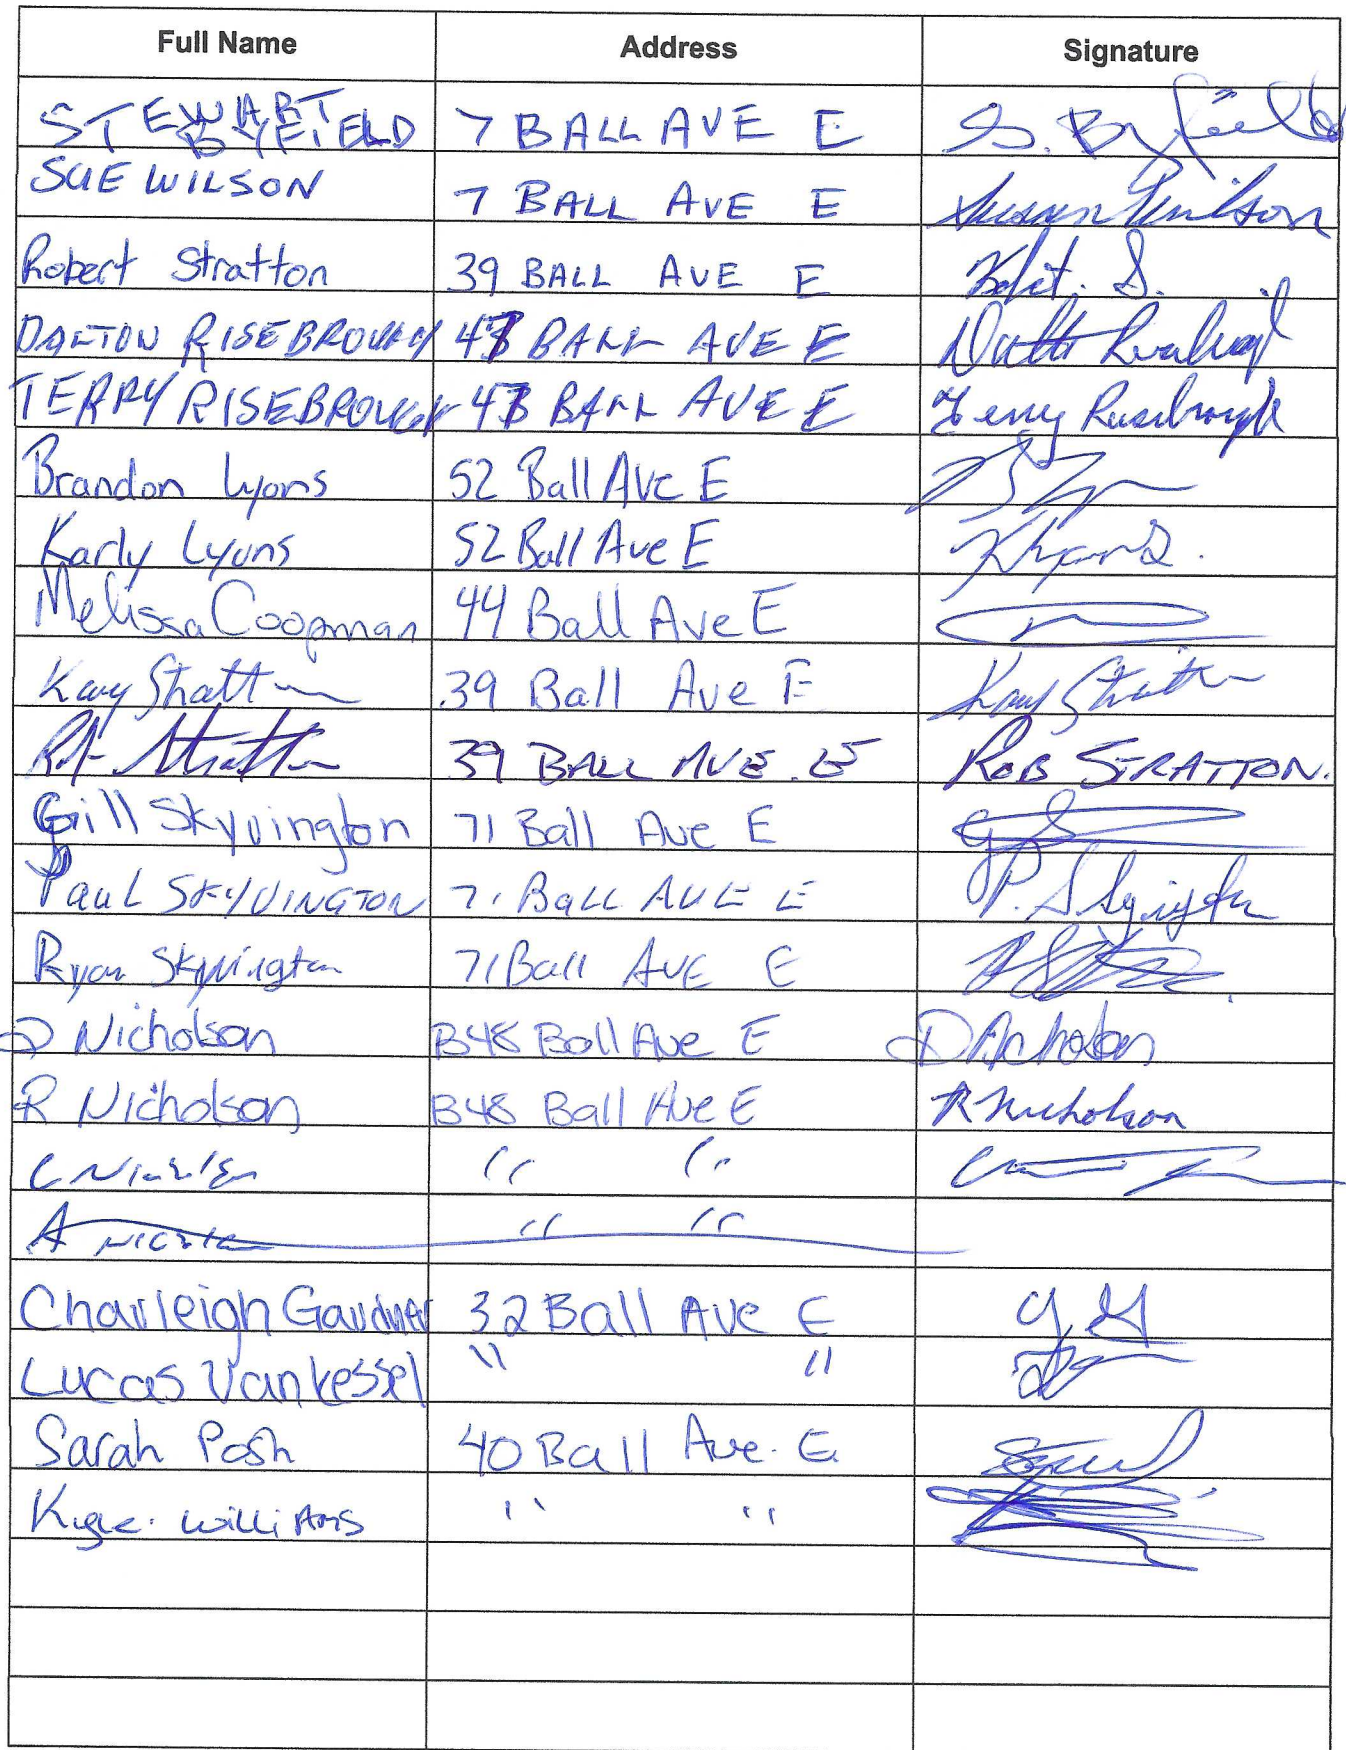 Full Name Address Signature
STEWART BYFIELD 7 BALL AVE E S. Byfield
SUE WILSON 7 BALL AVE E Susan Wilson
Robert Stratton 39 BALL AVE E S.
DALTON RISEBROUGH BALL AVE E
TERRY RISEBROUGH BALL AVE E Terry Risebrough
Brandon Lyons 52 Ball Ave E
Karly Lyons 52 Ball Ave E
Melissa Coopman 44 Ball Ave E
Kay Stratton 39 Ball Ave E Kay Stratton
Stratton 39 BALL AVE. E ROB STRATTON.
Gill Skyvington 71 Ball Ave E G S
Paul SKYVINGTON 71 Ball AVE E P. Skyvington
Ryan Skyvington 71 Ball AVE E
D Nicholson B48 Ball Ave E D Nicholson
R Nicholson B48 Ball Ave E R Nicholson
C " "
A " "
Charleigh Gardner 32 Ball Ave E C G
Lucas Vankessel " "
Sarah Posh 40 Ball Ave. E
Kyle. Williams " "